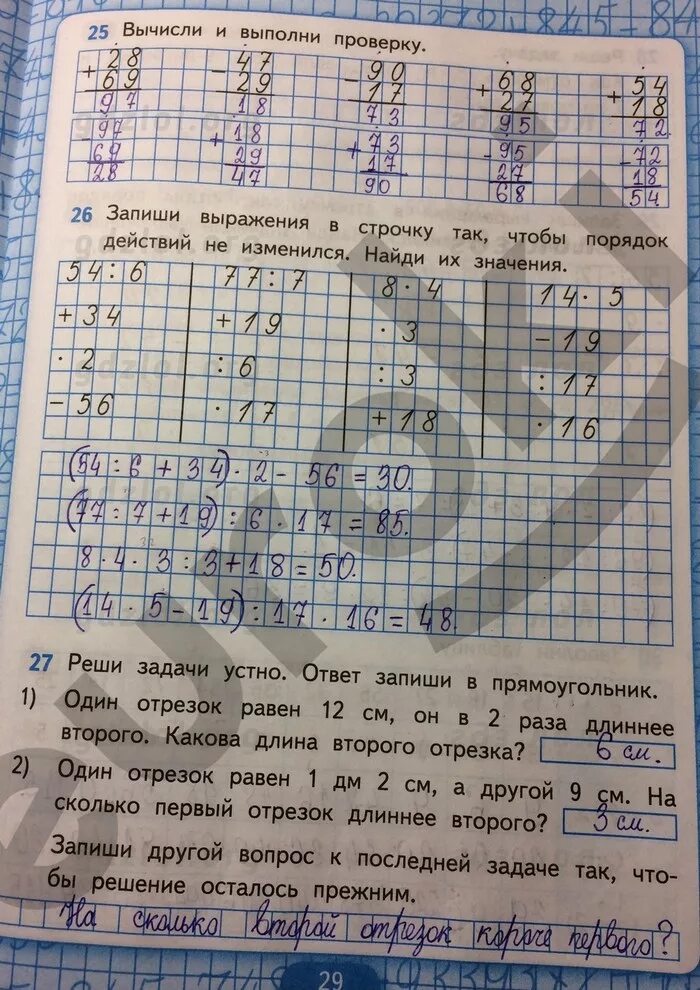 272 845-84
25 Вычисли и выполни проверку.
+28 -47 -90 +68 +54
69 29 17 27 18
97 18 73 95 72
-97 +18 +73 -95 -72
69 29 17 27 18
28 47 90 68 54
26 Запиши выражения в строчку так, чтобы порядок
действий не изменился. Найди их значения.
54:6 77:7 8·4 14·5
+34 +19 ·3 -19
·2 :6 :3 :17
-56 ·17 +18 ·16
(54:6+34)·2-56=30.
(77:7+19):6·17=85.
8·4·3:3+18=50.
(14·5-19):17·16=48.
27 Реши задачи устно. Ответ запиши в прямоугольник.
1) Один отрезок равен 12 см, он в 2 раза длиннее
второго. Какова длина второго отрезка? 6 см.
2) Один отрезок равен 1 дм 2 см, а другой 9 см. На
сколько первый отрезок длиннее второго? 3 см.
Запиши другой вопрос к последней задаче так, что-
бы решение осталось прежним.
На сколько второй отрезок короче первого?
29
euroki